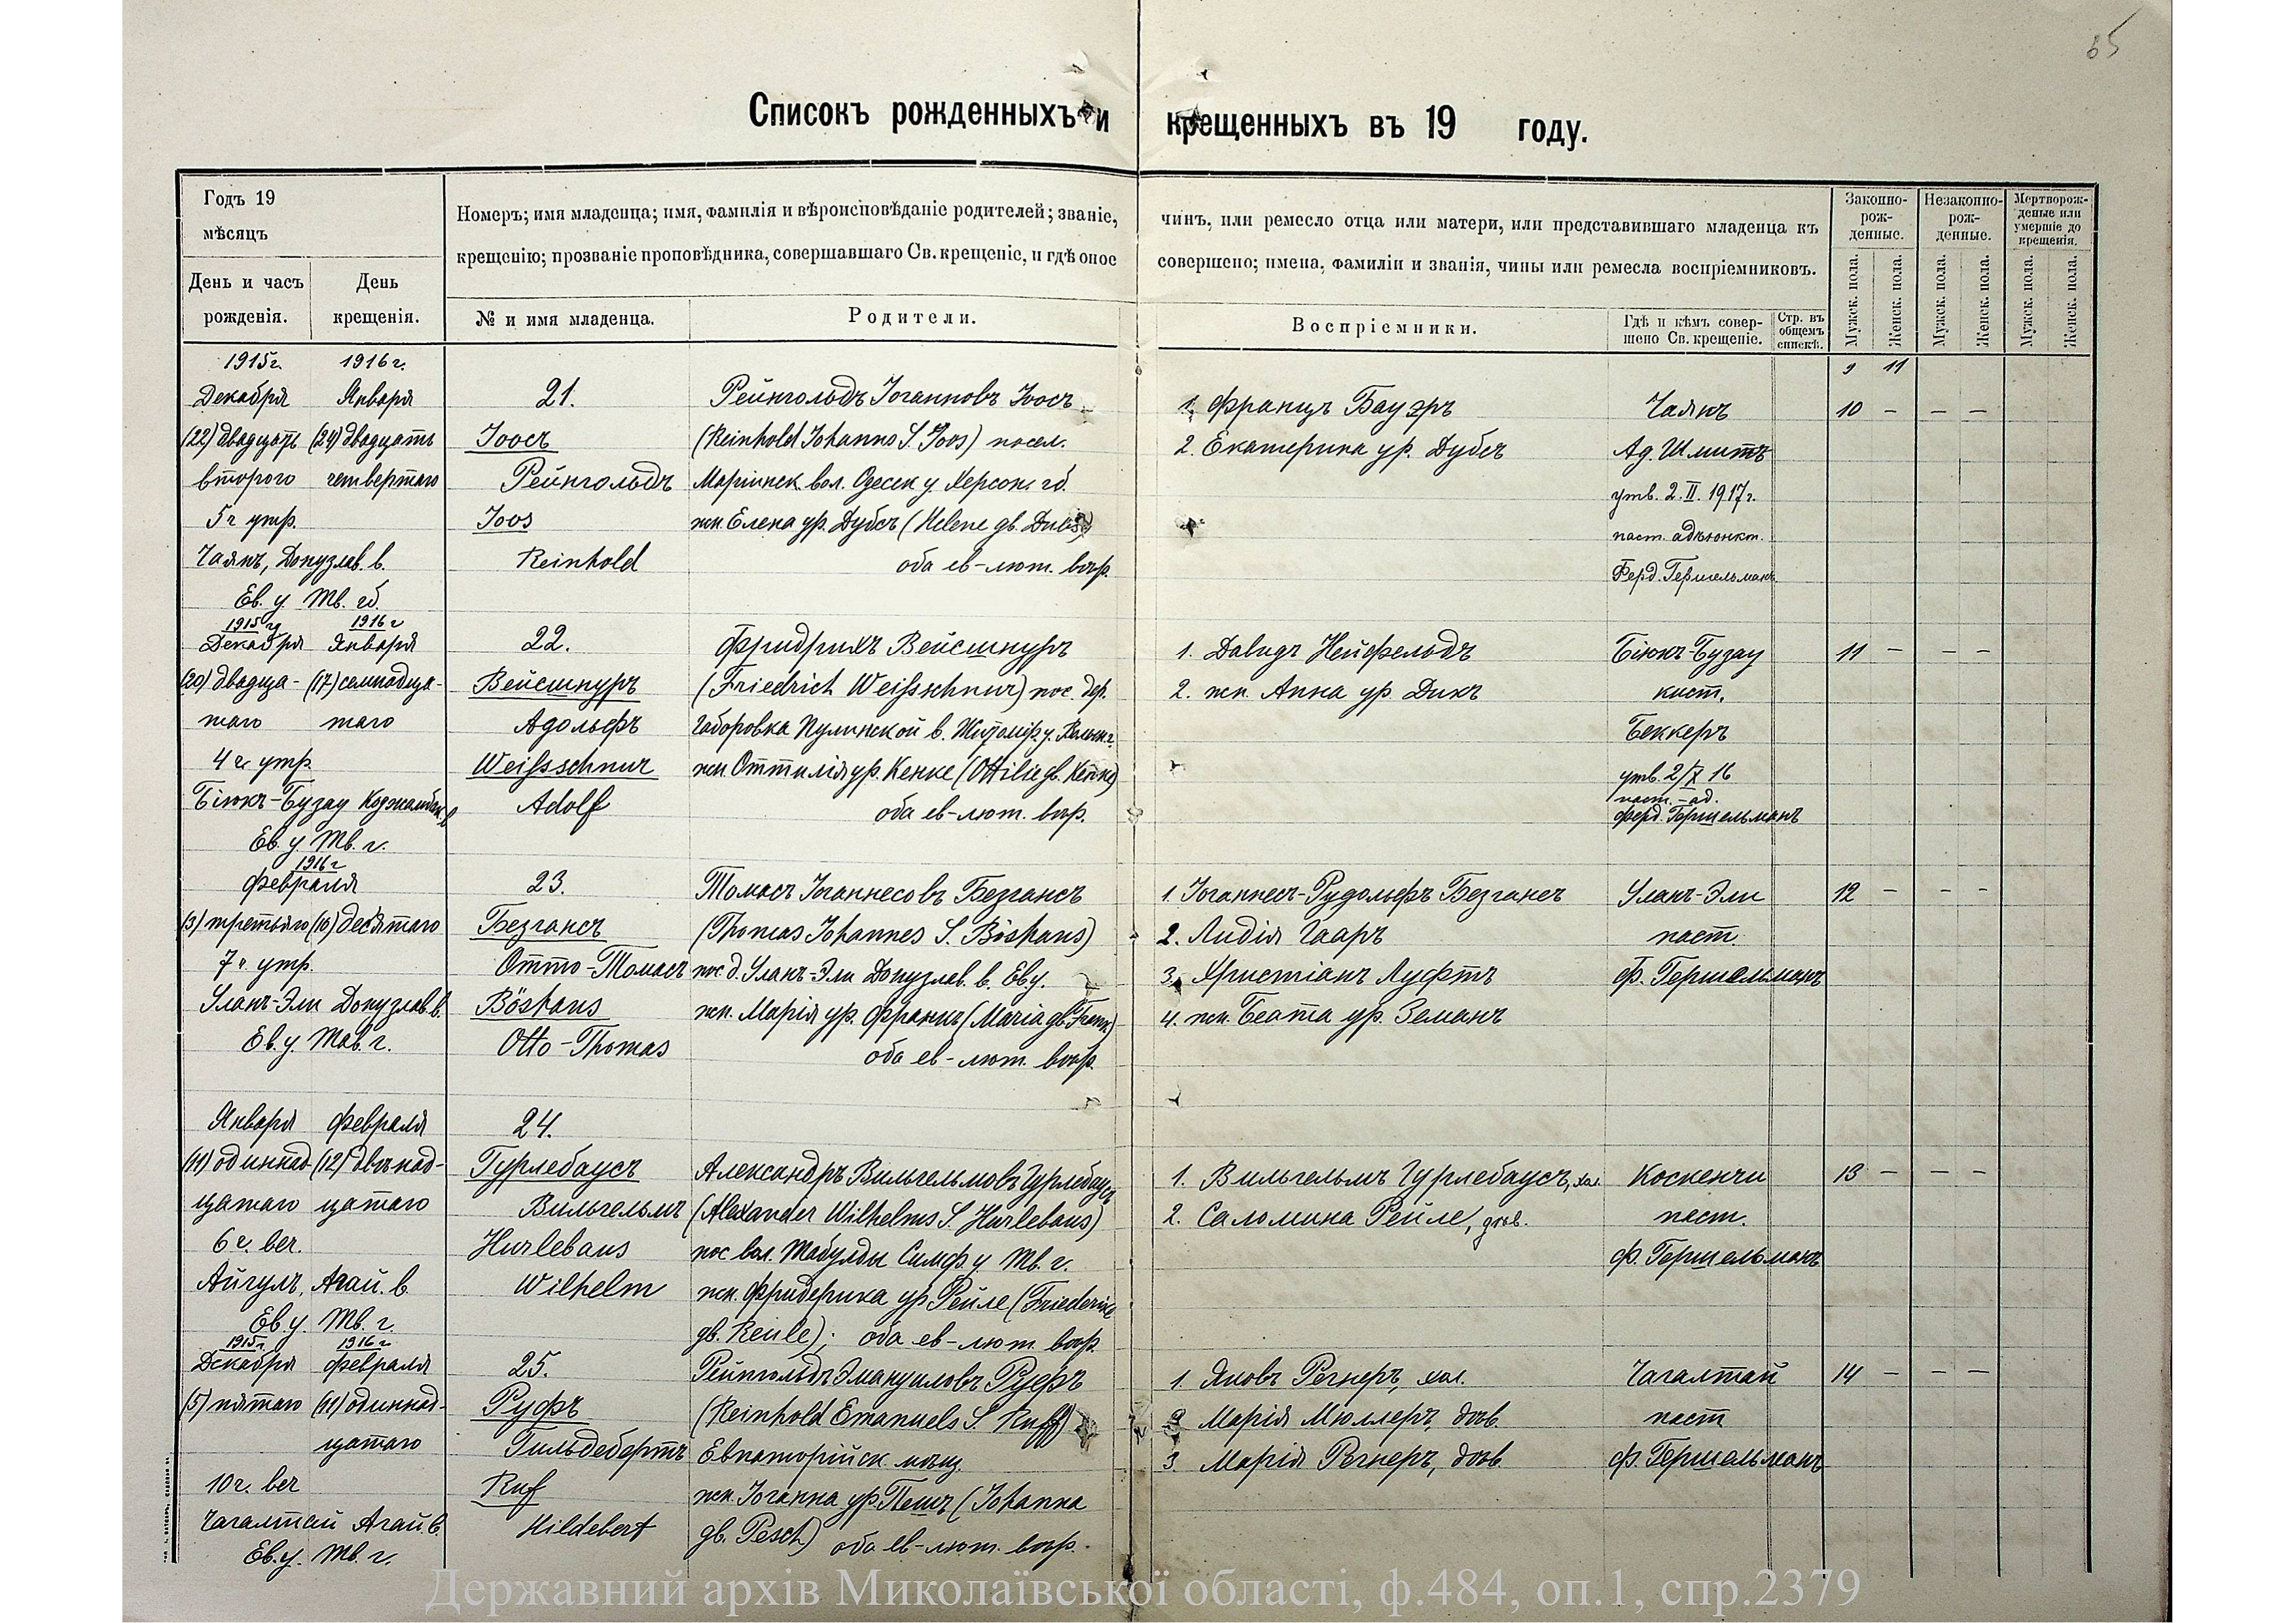 65
Списокъ рожденныхъ и крещенныхъ въ 19 году.
Годъ 19
мѣсяцъ
День и часъ рожденія.
День крещенія.
Номеръ; имя младенца; имя, фамилія и вѣроисповѣданіе родителей; званіе, чинъ, или ремесло отца или матери, или представившаго младенца къ
крещенію; прозваніе проповѣдника, совершавшаго Св. крещеніе, и гдѣ оное совершено; имена, фамиліи и званія, чины или ремесла воспріемниковъ.
№ и имя младенца.
Родители.
Воспріемники.
Гдѣ и кѣмъ совершено Св. крещеніе.
Стр. въ общемъ спискѣ.
Законно-рож-денные.
Незаконно-рож-денные.
Мертворож-денные или умершіе до крещенія.
Мужск. пола.
Женск. пола.
Мужск. пола.
Женск. пола.
Мужск. пола.
Женск. пола.
9 11
1915г. 1916г.
Декабря Января
(22) двадцать (24) двадцать
второго четвертаго
5ч утр.
Чаянъ, Допузлав. в.
Ев. у. Тв. гб.
21.
Іоосъ
Рейнгольдъ
Joos
Reinhold
Рейнгольдъ Іоганновъ Іоосъ
(Reinhold Johanns S. Joos) посел.
Маріинск. вол. Одесск у. Херсон. гб.
жн. Елена ур. Дубсъ (Helene gb. Dubs)
оба ев-лют. вѣр.
1. Францъ Бауэръ
2. Екатерина ур. Дубсъ
Чаянъ
Ад. Шмитъ
утв. 2.II.1917г.
паст. адъюнкт.
Ферд. Гершельманъ
10 - - -
1915г 1916г
Декабря Января
(20) двадца- (17) семнадца-
таго таго
4ч. утр.
Біюкъ-Бузау Коджамбак. в
Ев. у. Тв. г.
22.
Вейсшнуръ
Адольфъ
Weißschnur
Adolf
Фридрихъ Вейсшнуръ
(Friedrich Weißschnur) пос. дер.
Габоровка Пулинской в. Житомір. у. Волын. г.
жн. Оттилія ур. Кенке (Ottilie gb. Kenke)
оба ев-лют. вѣр.
1. Давидъ Нейфельдъ
2. жн. Анна ур. Дикъ
Біюкъ-Бузау
кист.
Беккеръ
утв. 2/X 16
паст.-ад.
ферд. Гершельманъ
11 - - -
1916г
Февраля
(3) третьяго (10) десятаго
7ч. утр.
Уланъ-Эли Допузлав. в.
Ев. у. Тав. г.
23.
Безгансъ
Отто-Томасъ
Böshans
Otto-Thomas
Томасъ Іоганнесовъ Безгансъ
(Thomas Johannes S. Böshans)
пос. д. Уланъ-Эли Допузлав. в. Ев у.
жн. Марія ур. Франкъ (Maria gb. Frank)
оба ев-лют. вѣр.
1. Іоганнесъ-Рудольфъ Безгансъ
2. Лидія Гааръ
3. Христіанъ Луфтъ
4. жн. Беата ур. Земанъ
Уланъ-Эли
паст.
Ф. Гершельманъ
12 - - -
Января Февраля
(11) одиннад- (12) двѣнад-
цатаго цатаго
6ч. веч.
Айгулъ, Агай. в.
Ев у. Тв. г.
24.
Гурлебаусъ
Вильгельмъ
Hurlebaus
Wilhelm
Александръ Вильгельмовъ Гурлебаусъ
(Alexander Wilhelms S. Hurlebaus)
пос вол. Табулды Симф. у Тв. г.
жн. Фридерика ур Рейле (Friederike
gb. Reule); оба ев-лют. вѣр
1. Вильгельмъ Гурлебаусъ, хол.
2. Саломина Рейле, дѣв.
Коскенчи
паст.
Ф. Гершельманъ
13 - - -
1915г. 1916г
Декабря Февраля
(5) пятаго (11) одиннад-
цатаго
10ч. веч
Чагалтай Агай в.
Ев. у. Тв. г.
25.
Руфъ
Гильдебертъ
Ruf
Hildebert
Рейнгольдъ Эмануиловъ Руфъ
(Reinhold Emanuels S. Ruff)
Евпаторійск. мѣщ.
жн. Іоганна ур. Пешъ (Johanna
gb. Pesch) оба ев-лют. вѣр.
1. Яковъ Регнеръ, хол.
2 Марія Мюллеръ, дѣв.
3. Марія Регнеръ, дѣв
Чагалтай
паст
Ф. Гершельманъ
14 - - -
Державний архів Миколаївської області, ф.484, оп.1, спр.2379